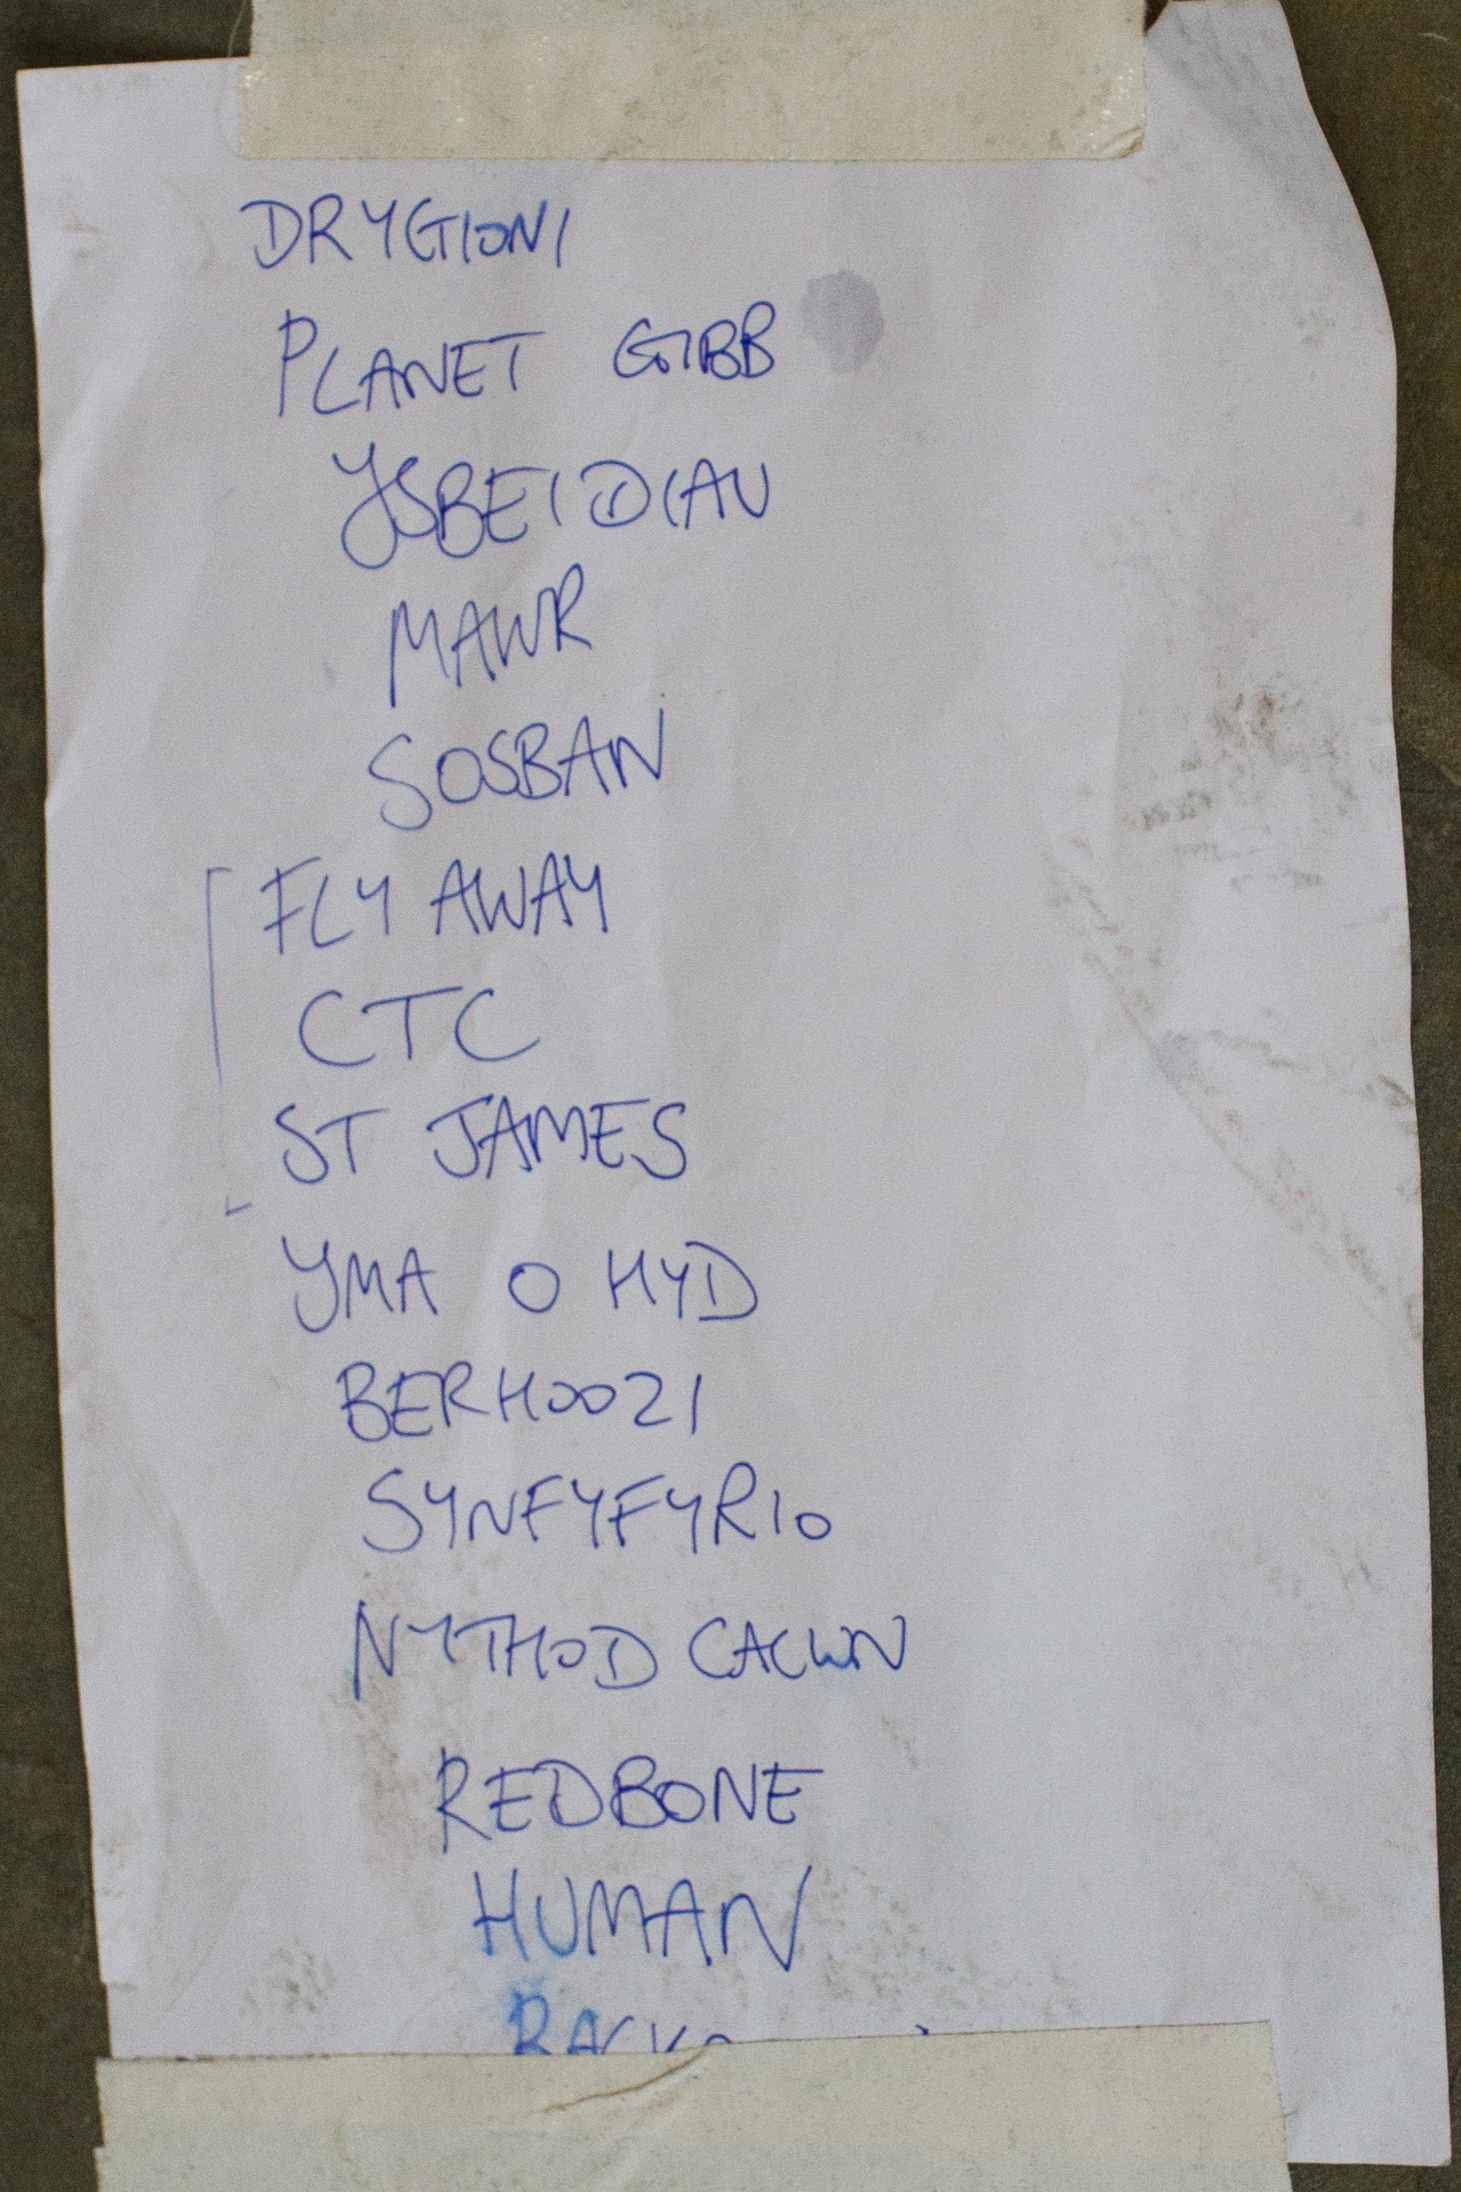 DRYGIONI
PLANET GIBB
YSBEIDIAU
MAWR
SOSBAN
FLY AWAY
CTC
ST JAMES
YMA O HYD
BERHOOZI
SYNFYFYRIO
NYTHOD CACWN
REDBONE
HUMAN